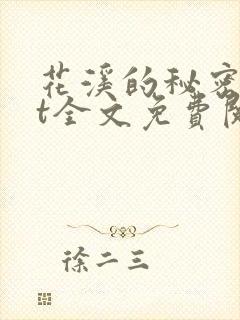 花溪的秘密
t全文免費閱
徐二三